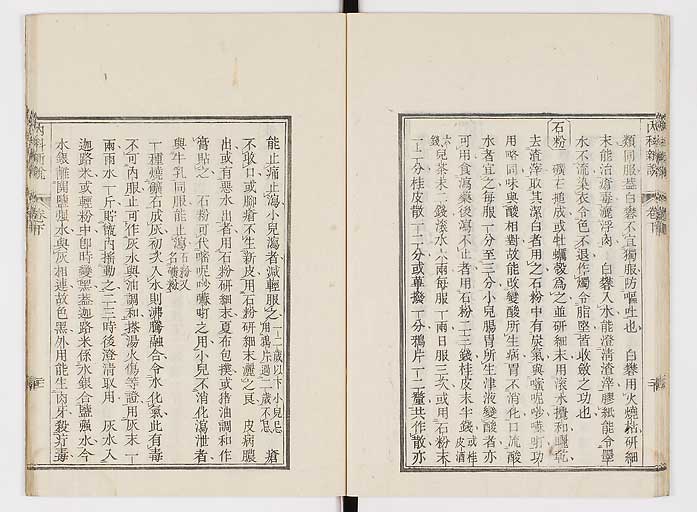 類同服蓋白礬不宜獨服防嘔吐也　白礬用火燒枯研細
末能治瘡毒灑浮肉　白礬入水能澄淸渣滓膠紙能令墨
水不流染衣令色不退作燭令脂堅皆收斂之功也
石粉　礦石搥成或牡蠣殼爲之並研細末用滾水攪和曬乾
去渣滓取其潔白者用之石粉中有炭氣與唊呢唦囄啲功
用畧同味與酸相對故能改變酸所生病胃不消化口流酸
水者宜之每服一分至三分小兒腸胃所生津液變酸者亦
可用食瀉藥後瀉不止者用石粉二三錢桂皮末半錢或桂皮酒
六錢兒茶末二錢滾水六兩每服一兩日服三次或用石粉末
一十分桂皮散一十二分或蓽撥一分鴉片一十二釐共作散亦
能止痛止瀉小兒瀉者減輕服之一二歲以下小兒忌用鴉片過二歲不忌　瘡
不歛口或脚瘡不生新皮用石粉研細末灑之良　皮病膿
出或有惡水出者用石粉研細末夏布包撲或猪油調和作
膏貼之　石粉可代唊呢唦囄啲之用小兒不消化瀉泄者
與牛乳同服能止瀉石粉又名礦粉
一種燒礦石成灰初次入水則沸騰融合令水化氣此有毒
不可內服止可作灰水與油調和搽湯火傷等證用灰末一
兩雨水一斤貯瓶內搖動之二三時後澄淸取用　灰水入
迦路米或輕粉中卽時變黑蓋迦路米係水銀合鹽强水今
水銀離開鹽强水與灰相連故色黑外用能生肉牙殺疥毒
內科新說
卷下